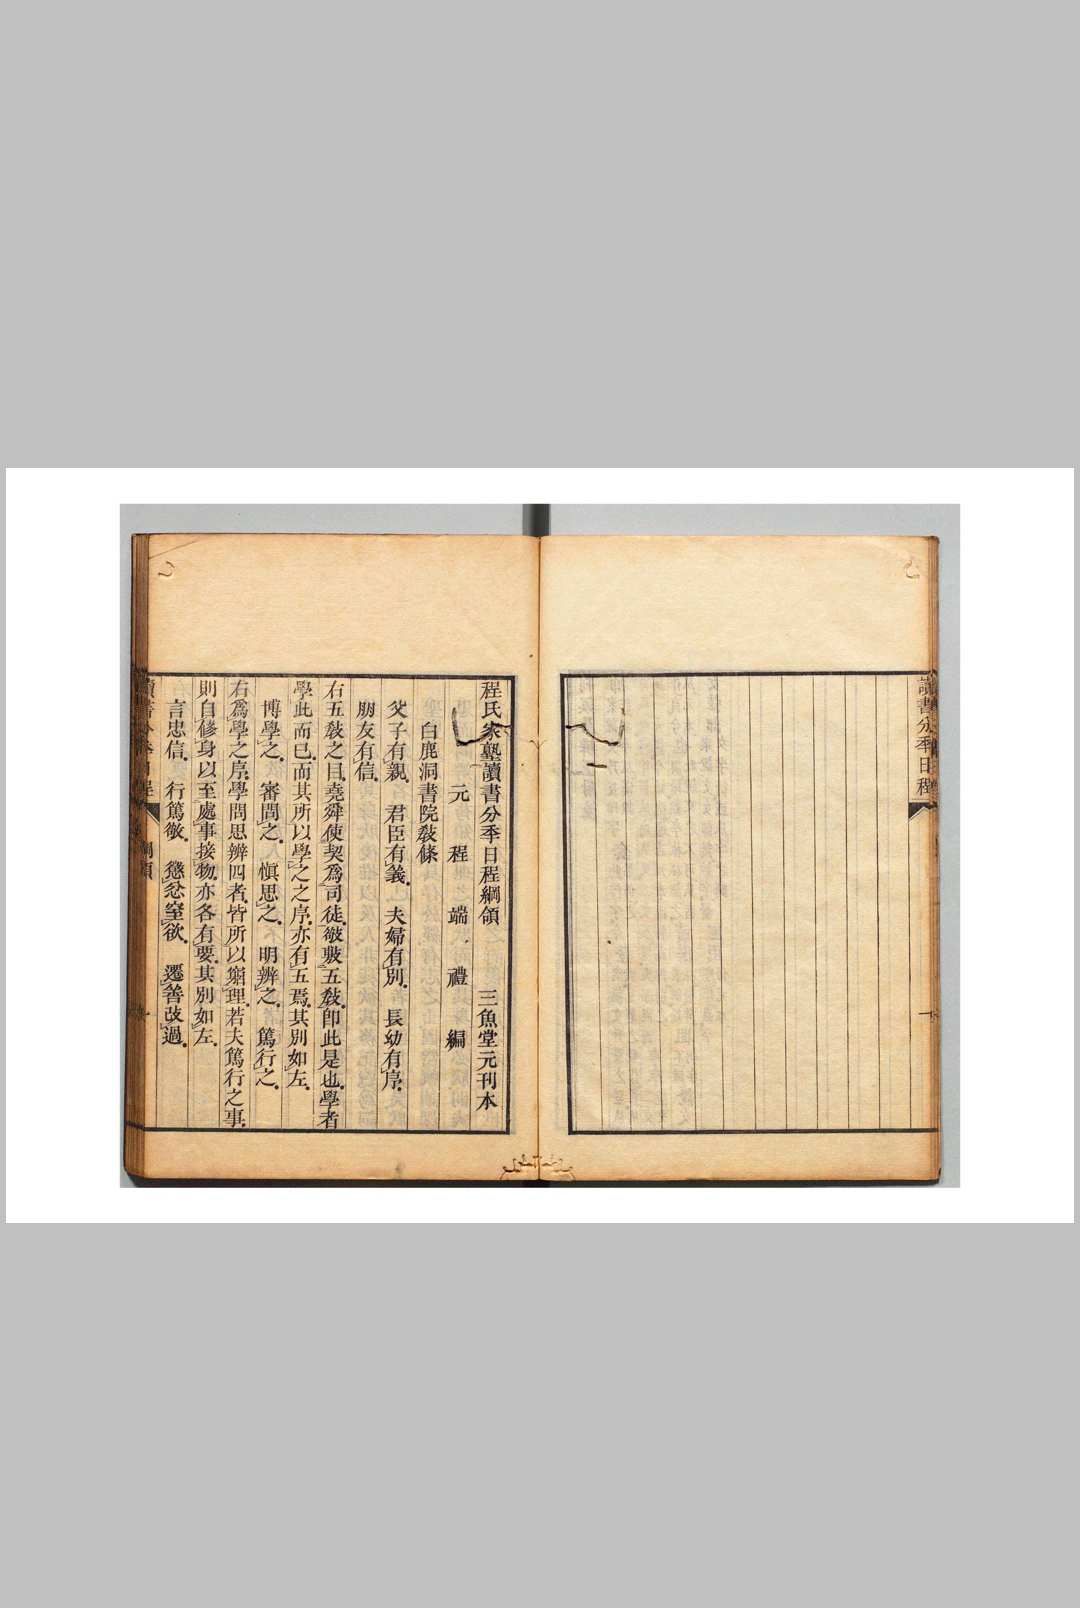 讀書分季日程
程氏家塾讀書分季日程綱領 三魚堂元刊本
元 程 端 禮 編
白鹿洞書院敎條
父子有親 君臣有義 夫婦有別 長幼有序
朋友有信
右五敎之目堯舜使契爲司徒敬敷五敎卽此是也學者
學此而已而其所以學之之序亦有五焉其別如左
博學之 審問之 愼思之 明辨之 篤行之
右爲學之序學問思辨四者皆所以窮理若夫篤行之事
則自修身以至處事接物亦各有要其別如左
言忠信 行篤敬 懲忿窒欲 遷善改過
讀書分季日程 綱領 一